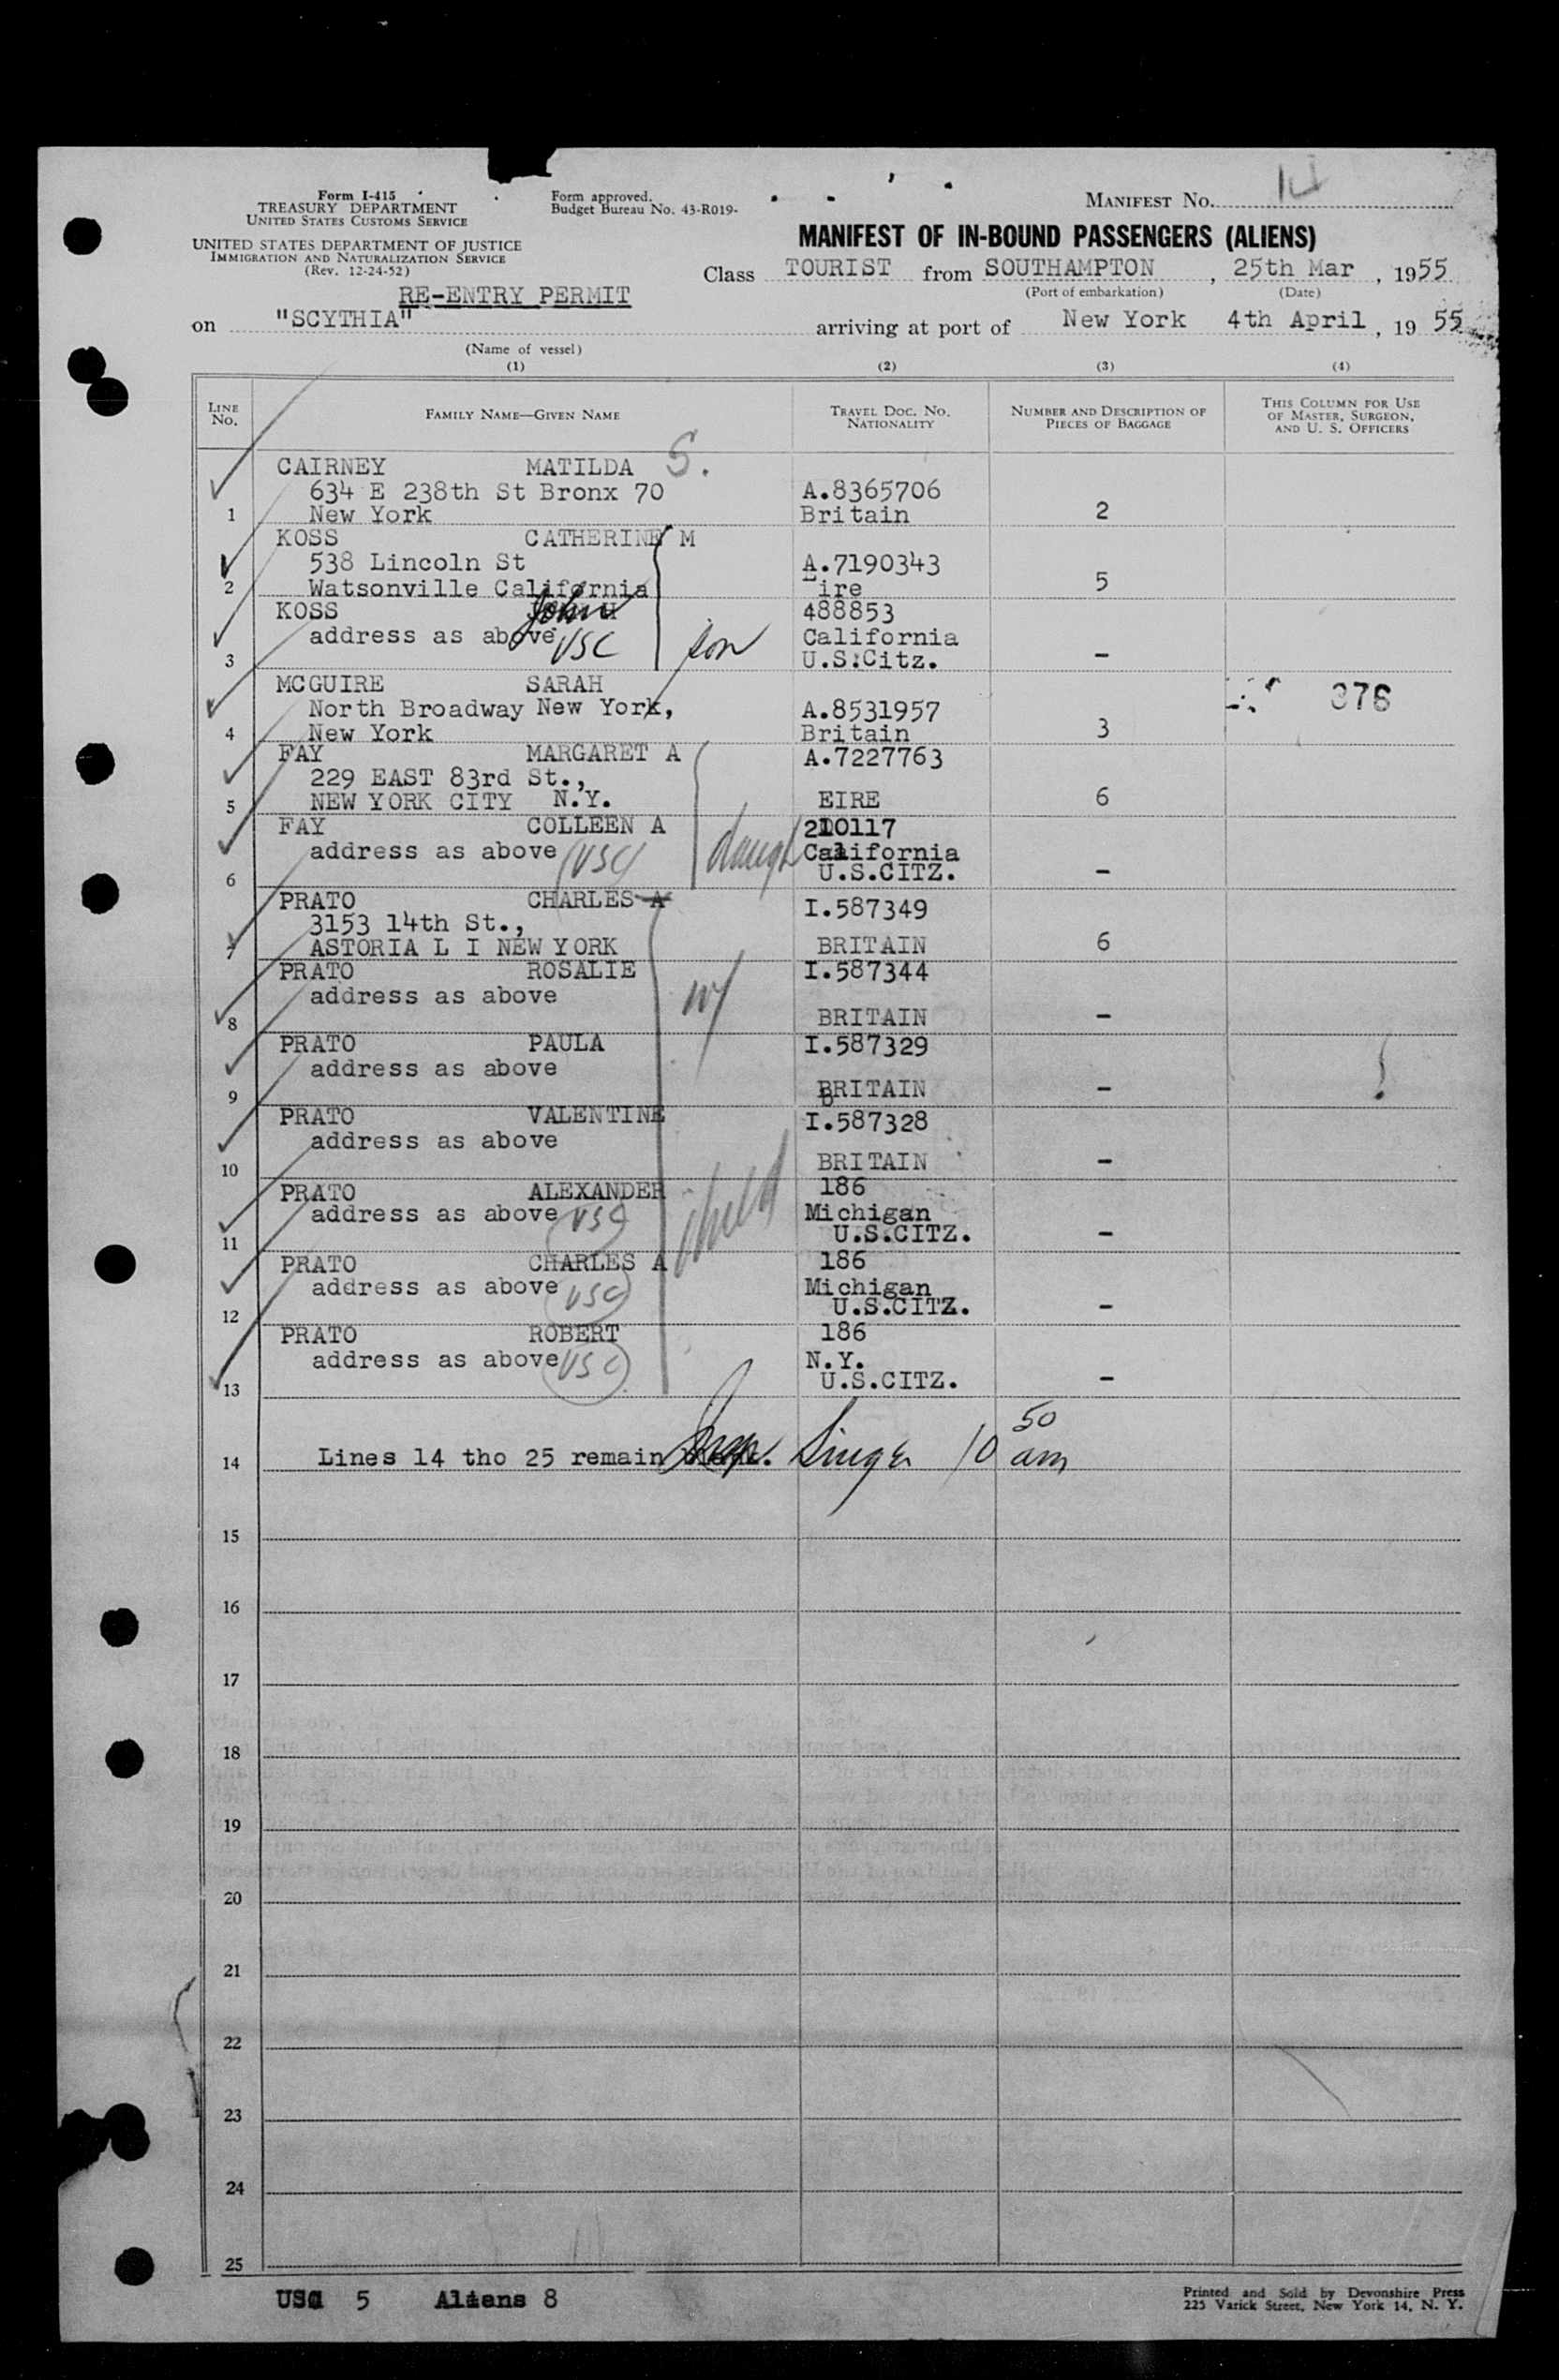 Form I-415
TREASURY DEPARTMENT
UNITED STATES CUSTOMS SERVICE
UNITED STATES DEPARTMENT OF JUSTICE
IMMIGRATION AND NATURALIZATION SERVICE
(Rev. 12-24-52)
Form approved.
Budget Bureau No. 43-R019-
MANIFEST No.
MANIFEST OF IN-BOUND PASSENGERS (ALIENS)
Class TOURIST from SOUTHAMPTON, 25th Mar, 1955
(Port of embarkation) (Date)
RE-ENTRY PERMIT
on "SCYTHIA" arriving at port of New York 4th April, 19 55
(Name of vessel)
(1) (2) (3) (4)
LINE No. FAMILY NAME—GIVEN NAME TRAVEL DOC. NO. NATIONALITY NUMBER AND DESCRIPTION OF PIECES OF BAGGAGE THIS COLUMN FOR USE OF MASTER, SURGEON, AND U. S. OFFICERS
CAIRNEY MATILDA S.
634 E 238th St Bronx 70 A.8365706
1 New York Britain 2
KOSS CATHERINE M
538 Lincoln St A.7190343
2 Watsonville California ire 5
KOSS John 488853
address as above USC son California
3 U.S.Citz. -
MCGUIRE SARAH 376
North Broadway New York, A.8531957
4 New York Britain 3
FAY MARGARET A A.7227763
229 EAST 83rd St.,
5 NEW YORK CITY N.Y. EIRE 6
FAY COLLEEN A 210117
address as above USC daugh California
6 U.S.CITZ. -
PRATO CHARLES A I.587349
3153 14th St.,
7 ASTORIA L I NEW YORK BRITAIN 6
PRATO ROSALIE I.587344
address as above
8 BRITAIN -
PRATO PAULA I.587329
address as above
9 BRITAIN -
PRATO VALENTINE I.587328
address as above
10 BRITAIN -
PRATO ALEXANDER 186
address as above USC child Michigan
11 U.S.CITZ. -
PRATO CHARLES A 186
address as above USC Michigan
12 U.S.CITZ. -
PRATO ROBERT 186
address as above USC N.Y.
13 U.S.CITZ. -
14 Lines 14 tho 25 remain Singer 10 50 am
15
16
17
18
19
20
21
22
23
24
25
USC 5 Aliens 8
Printed and Sold by Devonshire Press
225 Varick Street, New York 14, N. Y.